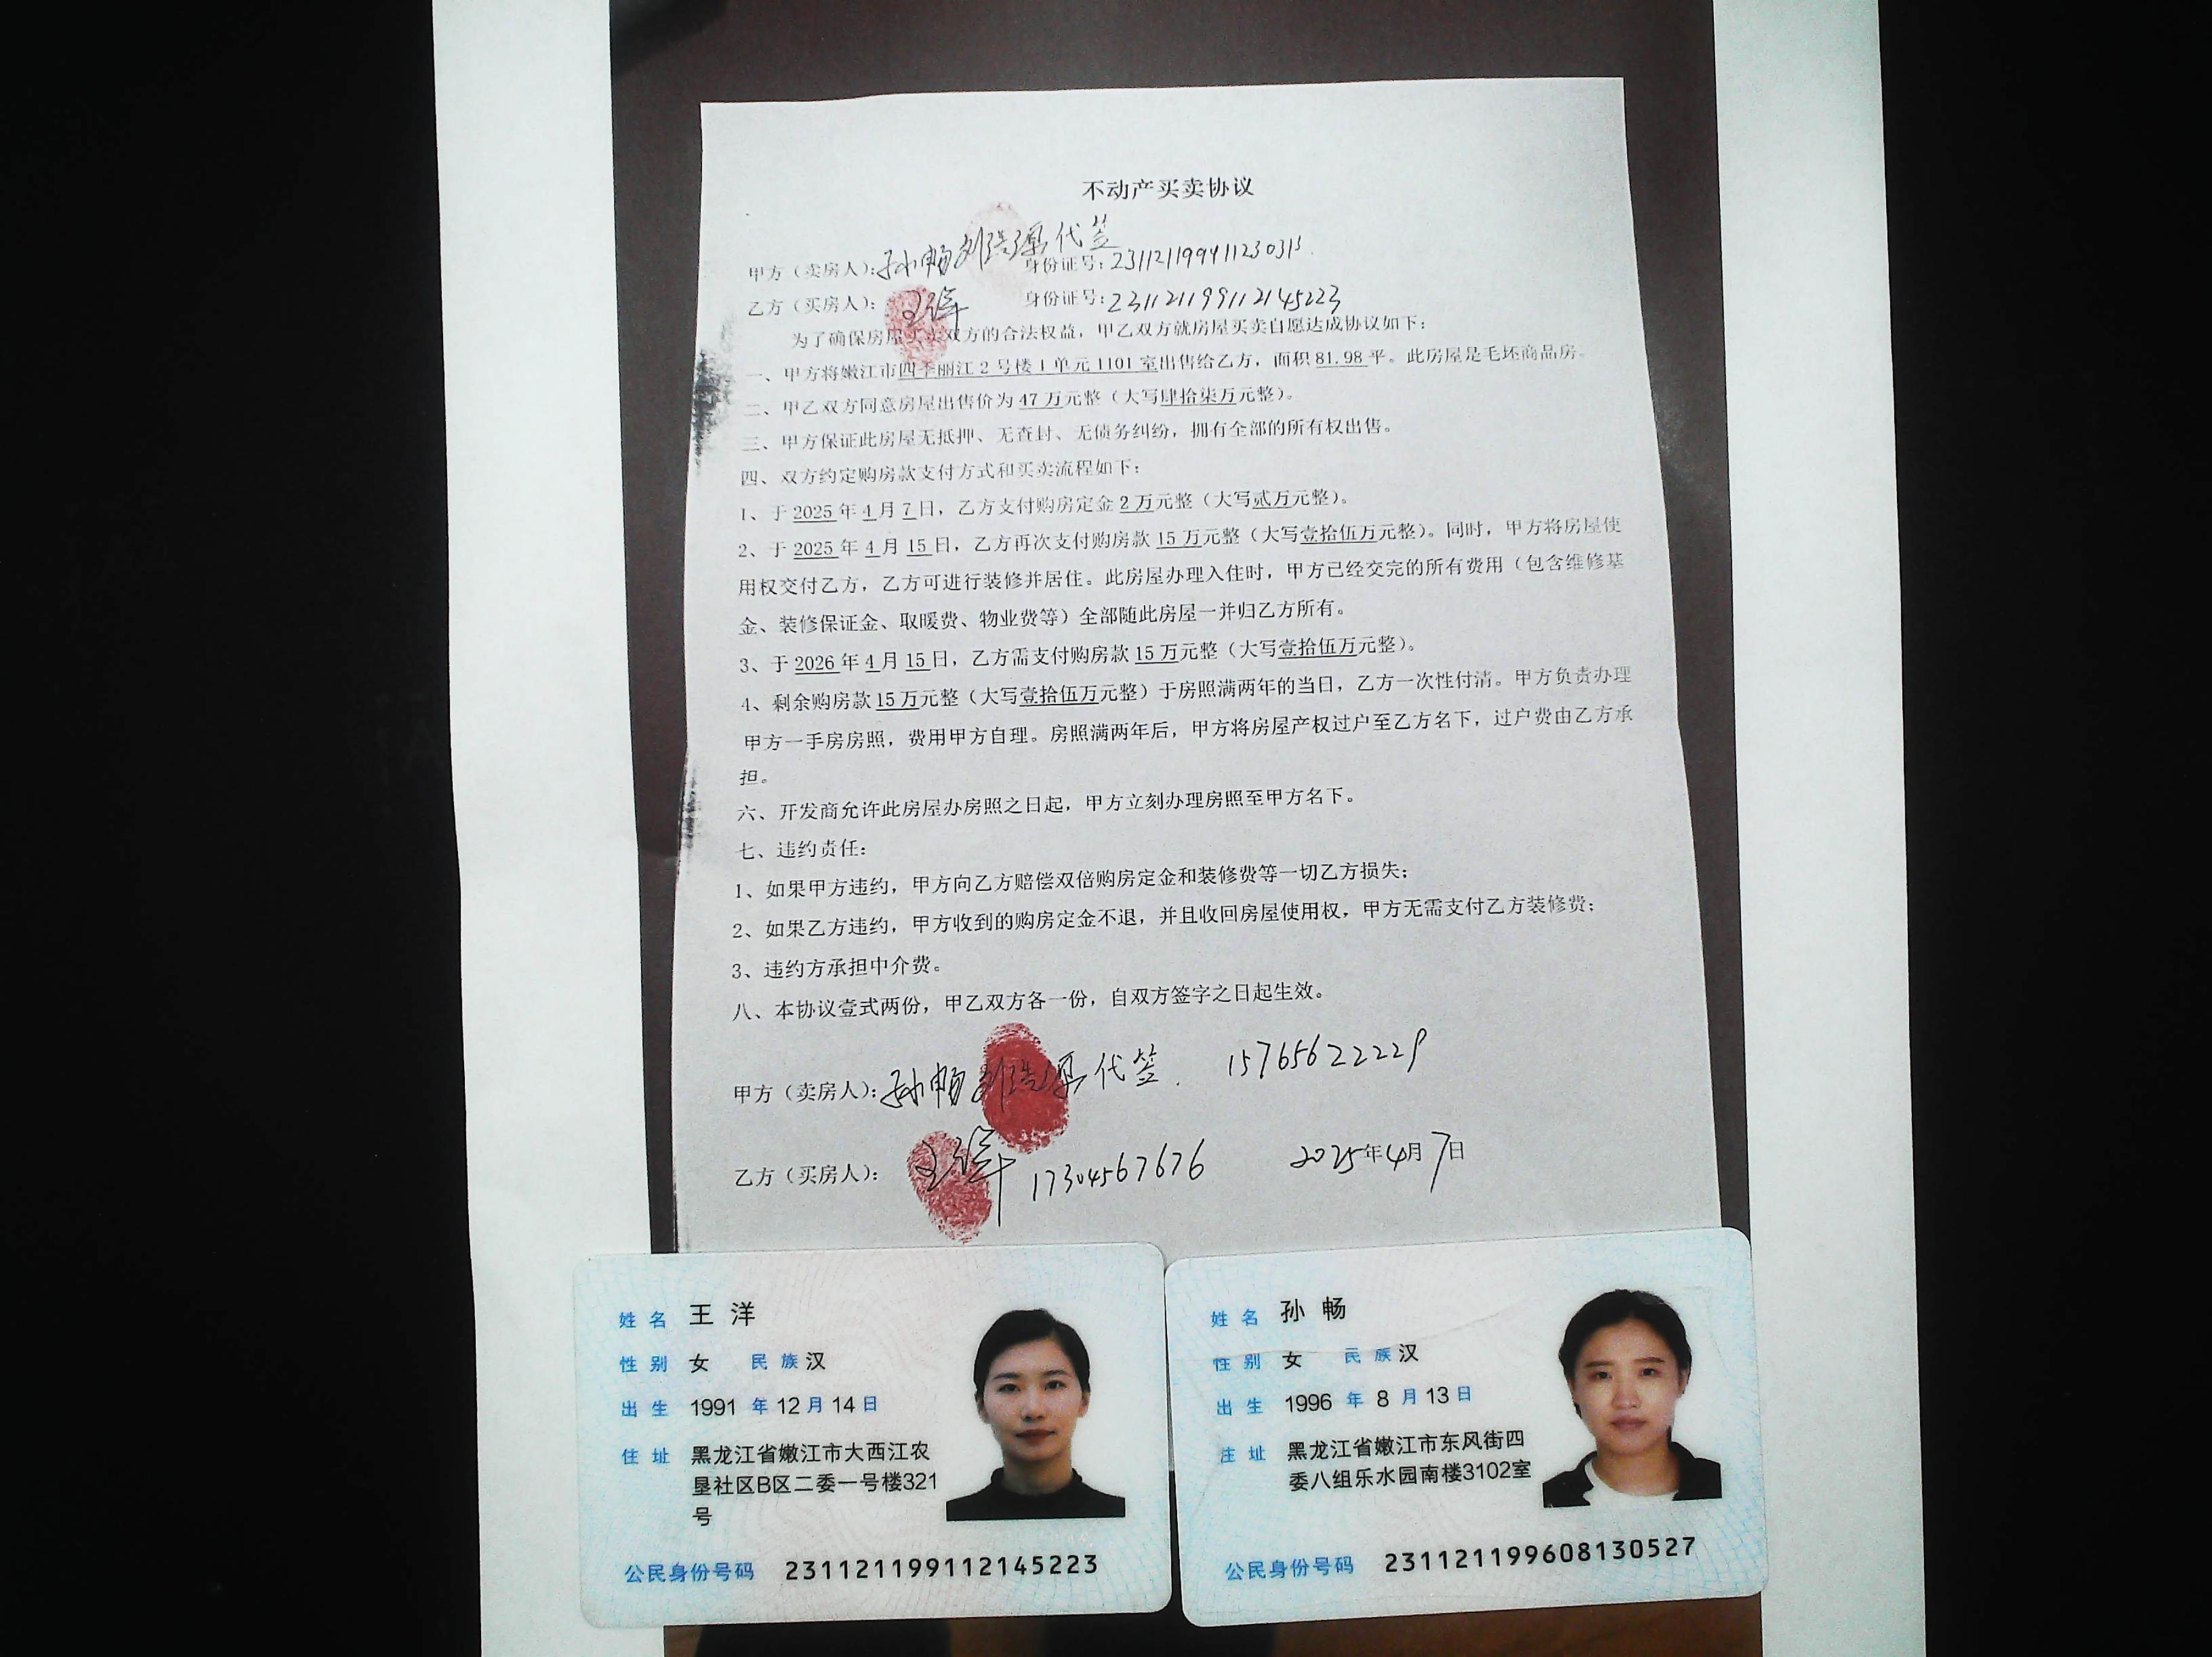 不动产买卖协议
甲方（卖房人）：孙畅 刘浩源代签 身份证号：
乙方（买房人）：王洋 身份证号：231121199112145223
为了确保房屋买卖双方的合法权益，甲乙双方就房屋买卖自愿达成协议如下：
一、甲方将嫩江市四季丽江2号楼1单元1101室出售给乙方，面积81.98平。此房屋是毛坯商品房。
二、甲乙双方同意房屋出售价为47万元整（大写肆拾柒万元整）。
三、甲方保证此房屋无抵押、无查封、无债务纠纷，拥有全部的所有权出售。
四、双方约定购房款支付方式和买卖流程如下：
1、于2025年4月7日，乙方支付购房定金2万元整（大写贰万元整）。
2、于2025年4月15日，乙方再次支付购房款15万元整（大写壹拾伍万元整）。同时，甲方将房屋使
用权交付乙方，乙方可进行装修并居住。此房屋办理入住时，甲方已经交完的所有费用（包含维修基
金、装修保证金、取暖费、物业费等）全部随此房屋一并归乙方所有。
3、于2026年4月15日，乙方需支付购房款15万元整（大写壹拾伍万元整）。
4、剩余购房款15万元整（大写壹拾伍万元整）于房照满两年的当日，乙方一次性付清。甲方负责办理
甲方一手房房照，费用甲方自理。房照满两年后，甲方将房屋产权过户至乙方名下，过户费由乙方承
担。
六、开发商允许此房屋办房照之日起，甲方立刻办理房照至甲方名下。
七、违约责任：
1、如果甲方违约，甲方向乙方赔偿双倍购房定金和装修费等一切乙方损失；
2、如果乙方违约，甲方收到的购房定金不退，并且收回房屋使用权，甲方无需支付乙方装修费；
3、违约方承担中介费。
八、本协议壹式两份，甲乙双方各一份，自双方签字之日起生效。
甲方（卖房人）：孙畅 刘浩源代签. 15765622229
乙方（买房人）：王洋 17304567676 2025年4月7日
姓名 王洋
性别 女 民族 汉
出生 1991年12月14日
住址 黑龙江省嫩江市大西江农
垦社区B区二委一号楼321
号
公民身份号码 231121199112145223
姓名 孙畅
性别 女 民族 汉
出生 1996年8月13日
住址 黑龙江省嫩江市东风街四
委八组乐水园南楼3102室
公民身份号码 231121199608130527